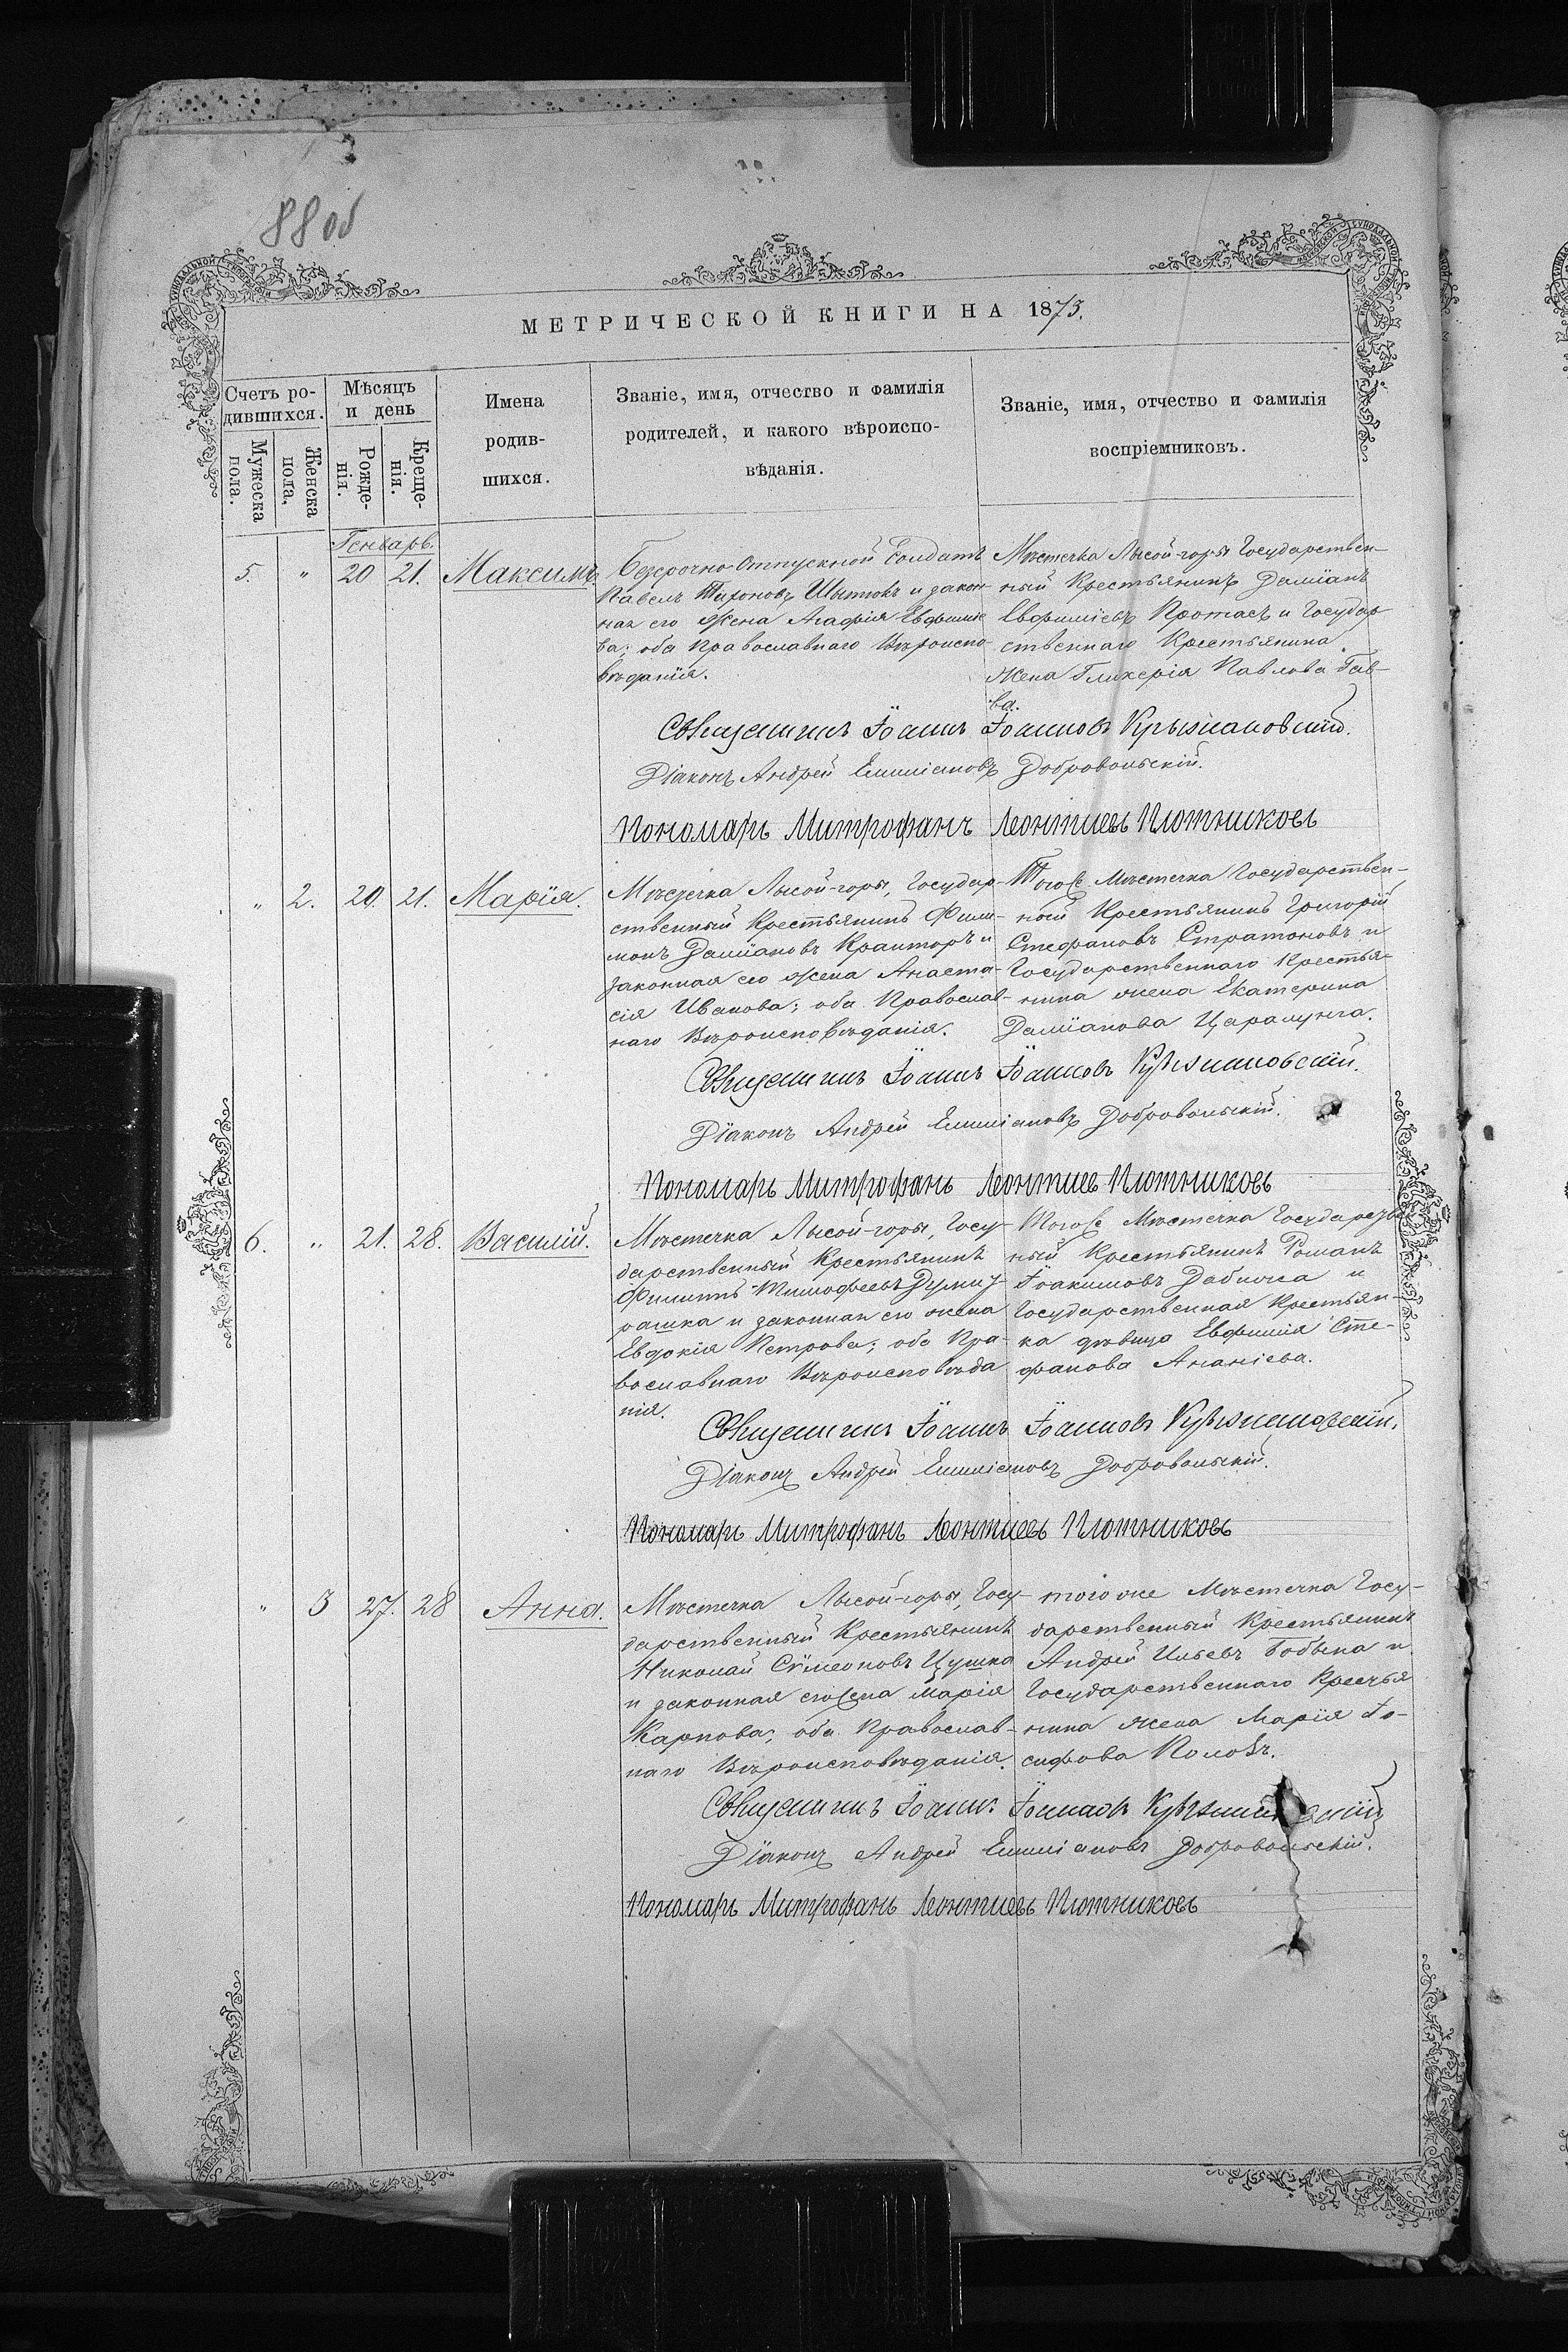 88 об
МЕТРИЧЕСКОЙ КНИГИ НА 1873.
Счетъ родившихся.
Мѣсяцъ и день
Имена родившихся.
Званіе, имя, отчество и фамилія родителей, и какого вѣроисповѣданія.
Званіе, имя, отчество и фамилія воспріемниковъ.
Мужеска пола.
Женска пола.
Рожденія.
Крещенія.
Генварь.
5. " 20 21. Максимъ.
Безсрочно-Отпускной Солдатъ
Павелъ Тихоновъ и закон-
ная его жена Агафія Евфиміе
ва; оба Православнаго Вѣроиспо-
вѣданія.
Мѣстечка Лысой-горы Государствен-
ный Крестьянинъ Даміанъ
Евфиміевъ Протасъ и Государ
ственнаго Крестьянина
жена Гликерія Павлова Гав-
ва.
Священникъ Іоаннъ Іоанновъ Крыжановскій.
Діаконъ Андрей Емиліановъ Добровольскій.
Пономарь Митрофанъ Леонтіевъ Плотниковъ
" 2. 20. 21. Марія.
Мѣстечка Лысой-горы, Государ-
ственный Крестьянинъ Фили-
монъ Даміановъ Кранторъ и
законная его жена Анаста-
сія Иванова; оба Православ-
наго Вѣроисповѣданія.
Того же Мѣстечка Государствен-
ный Крестьянинъ Григорій
Стефановъ Стратоновъ и
Государственнаго Крестья-
нина жена Екатерина
Даміанова Царалунга.
Священникъ Іоаннъ Іоанновъ Крыжановскій.
Діаконъ Андрей Емиліановъ Добровольскій.
Пономарь Митрофанъ Леонтиевъ Плотниковъ
6. " 21. 28. Василій.
Мѣстечка Лысой-горы, Госу-
дарственный Крестьянинъ
Филиппъ Тимофеевъ
рашка и законная его жена
Евдокія Петрова; оба Пра-
вославнаго Вѣроисповѣда
нія.
Того же Мѣстечка Государствен
ный Крестьянинъ Романъ
Іоакимовъ Дабижа и
Государственная Крестьян-
ка дѣвица Евфимія Сте-
фанова Ананіева.
Священникъ Іоаннъ Іоанновъ Крыжановскій.
Діаконъ Андрей Емиліановъ Добровольскій.
Пономарь Митрофанъ Леонтиевъ Плотниковъ
" 3 27. 28 Анна.
Мѣстечка Лысой-горы, Госу-
дарственный Крестьянинъ
Николай Сѵмеоновъ Цушка
и законная его жена Марія
Карпова; оба Православ-
наго Вѣроисповѣданія.
того же Мѣстечка Госу-
дарственный Крестьянинъ
Андрей Ильевъ Бобына и
Государственнаго Крестья
нина жена Марія Іо-
сифова
Священникъ Іоаннъ Іоанновъ Крыжановскій
Діаконъ Андрей Емиліановъ Добровольскій.
Пономарь Митрофанъ Леонтиевъ Плотниковъ